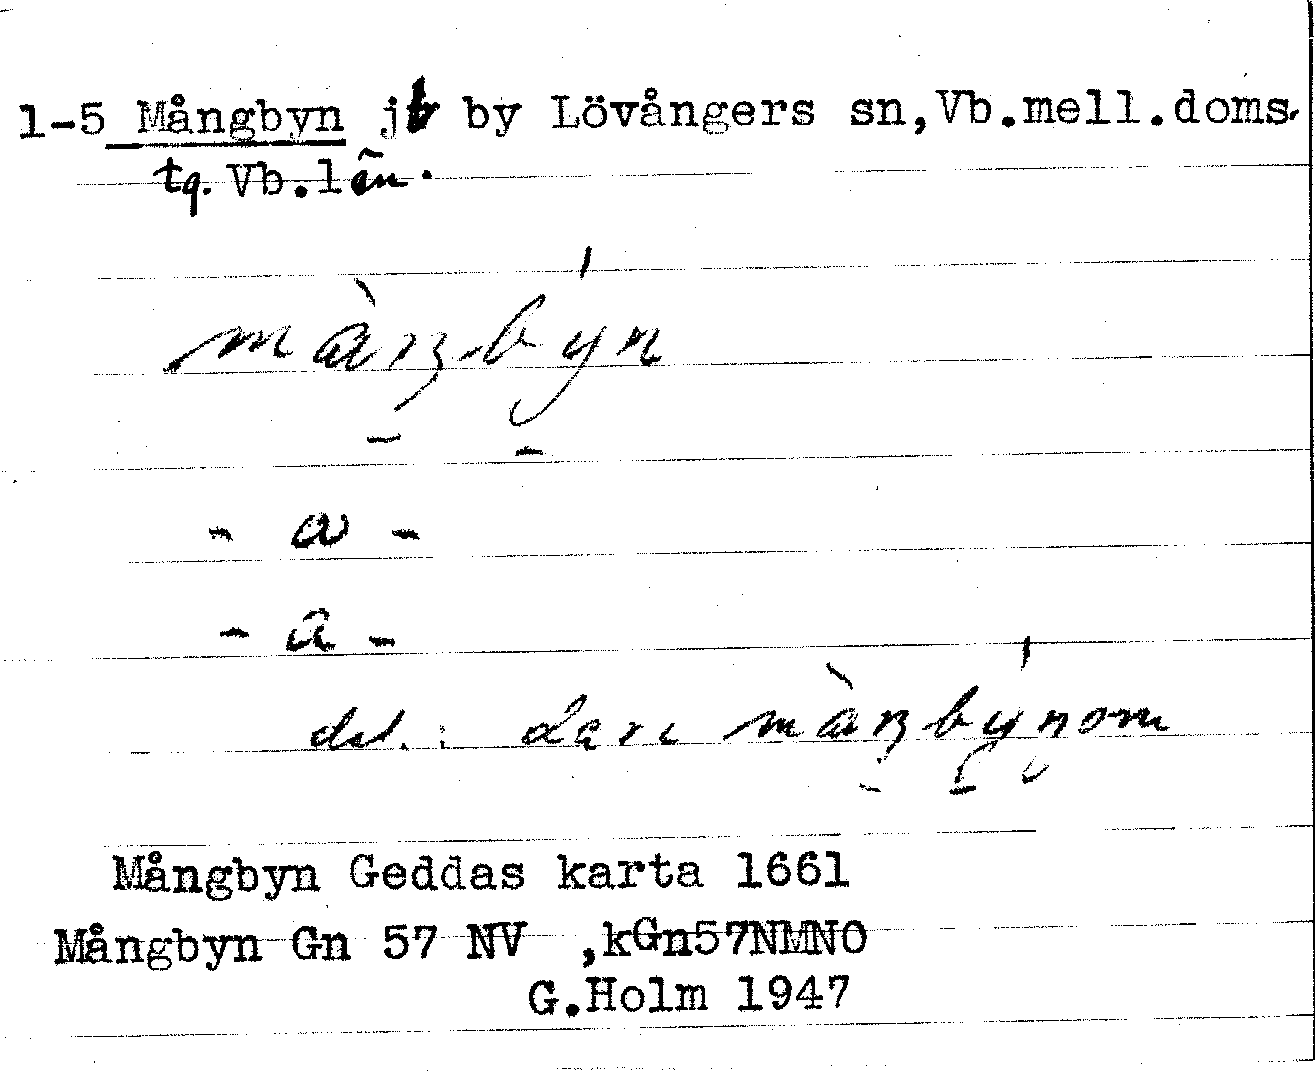 1-5 Mångbyn jb by Lövångers sn,Vb.mell.doms.
tg. Vb.län.
- a -
- a -
dat. :
Mångbyn Geddas karta 1661
Mångbyn Gn 57 NV ,kGn57NMNO
G.Holm 1947